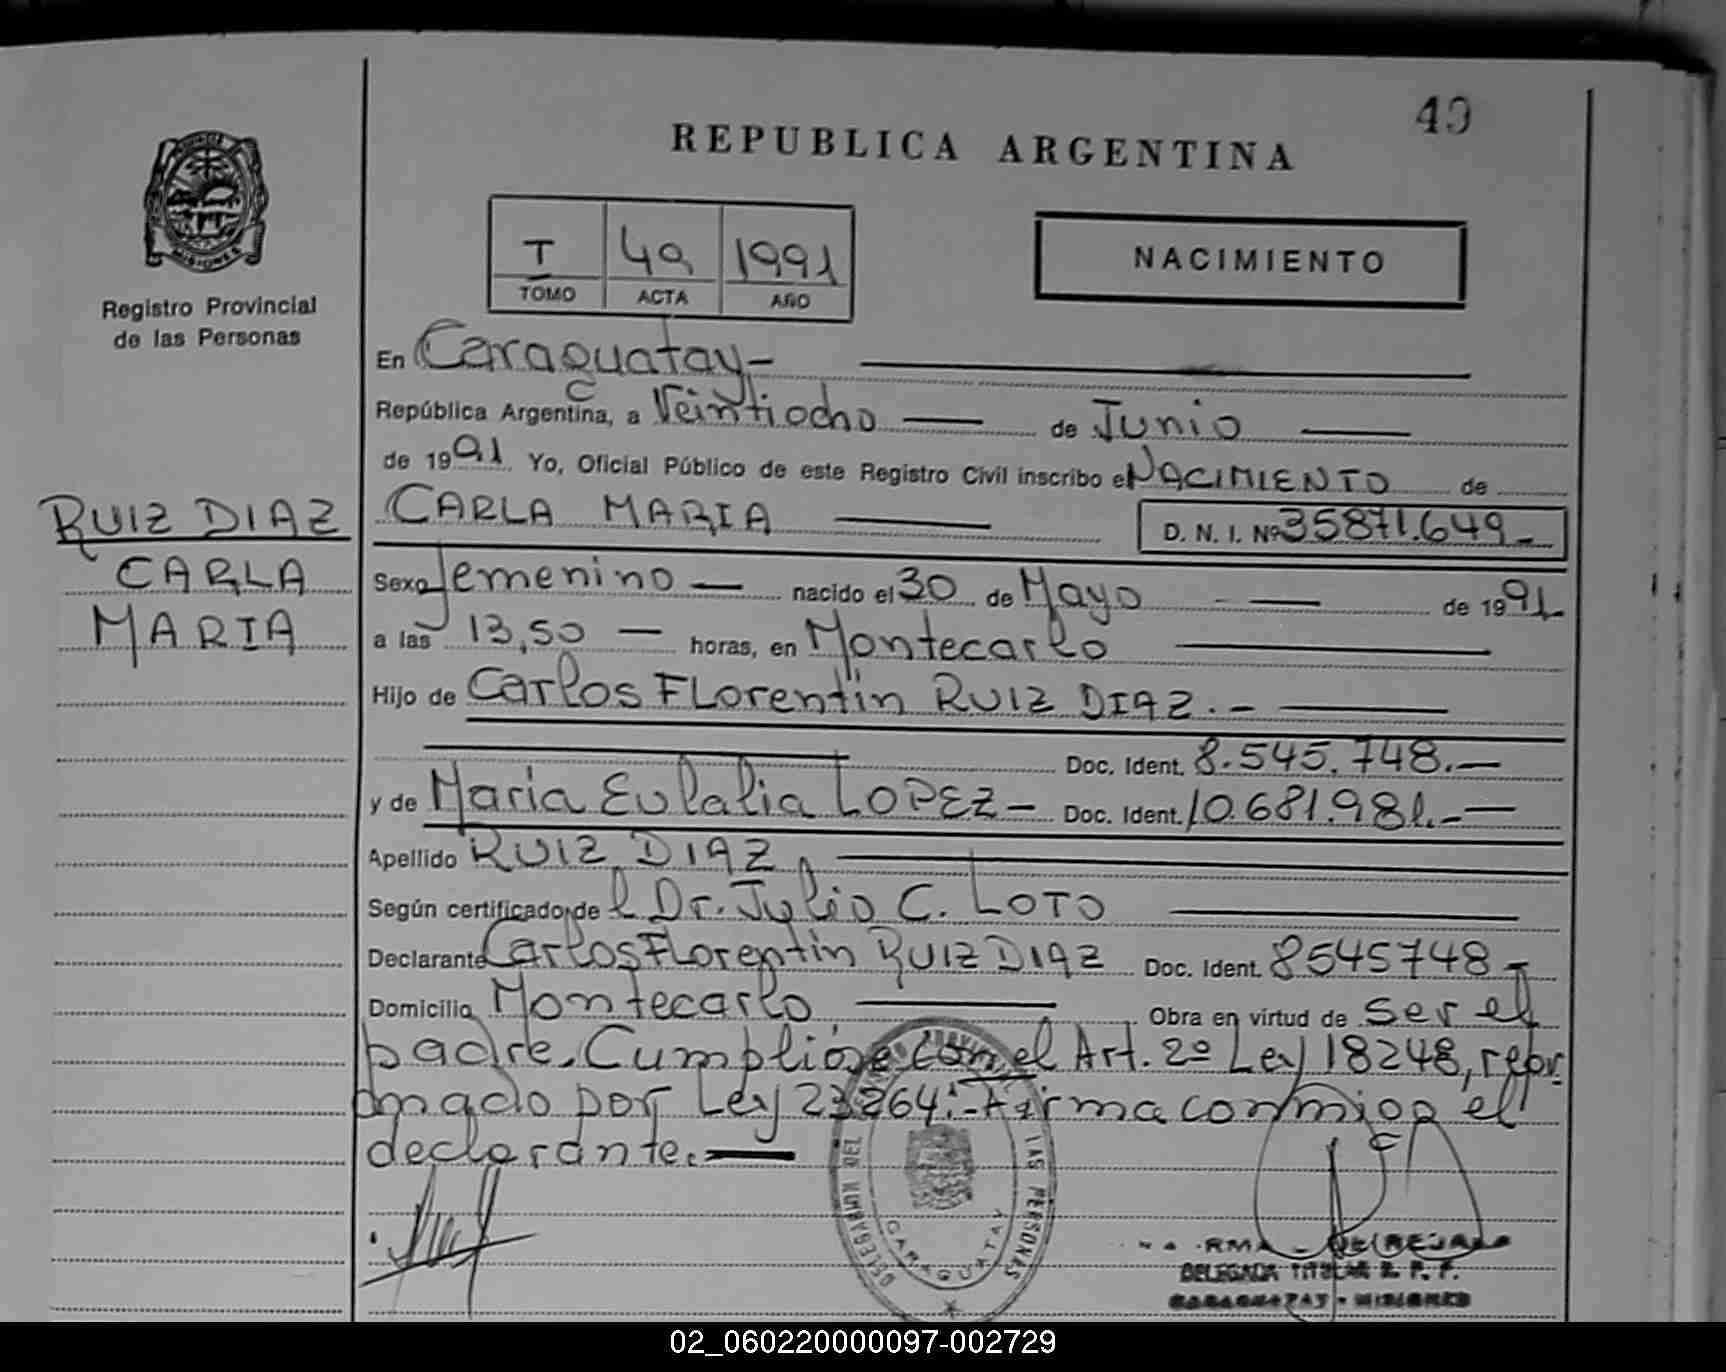 49
REPUBLICA ARGENTINA
MISIONES
Registro Provincial
de las Personas
T 49 1991
TOMO ACTA AÑO
NACIMIENTO
En Caraguatay-
República Argentina, a Veintiocho de Junio
de 1991 Yo, Oficial Público de este Registro Civil inscribo el NACIMIENTO de
RUIZ DIAZ
CARLA
MARIA
CARLA MARIA D. N. I. Nº 35871.649-
Sexo femenino nacido el 30 de Mayo de 1991
a las 13,50 horas, en Montecarlo
Hijo de Carlos Florentin RUIZ DIAZ.-
Doc. Ident. 8.545.748.-
y de Maria Eulalia LOPEZ- Doc. Ident. 10.681.981.-
Apellido RUIZ DIAZ
Según certificado de l Dr. Julio C. LOTO
Declarante Carlos Florentin RUIZ DIAZ Doc. Ident. 8545748-
Domicilio Montecarlo Obra en virtud de ser el
padre. Cumplióse con el Art. 2º Ley 18248, refor-
mado por Ley 23264.- Firma conmigo el
declarante.
DELEGACION DEL REGISTRO PROVINCIAL DE LAS PERSONAS
CARAGUATAY
DELEGADA TITULAR R. P. P.
CARAGUATAY - MISIONES
02_060220000097-002729